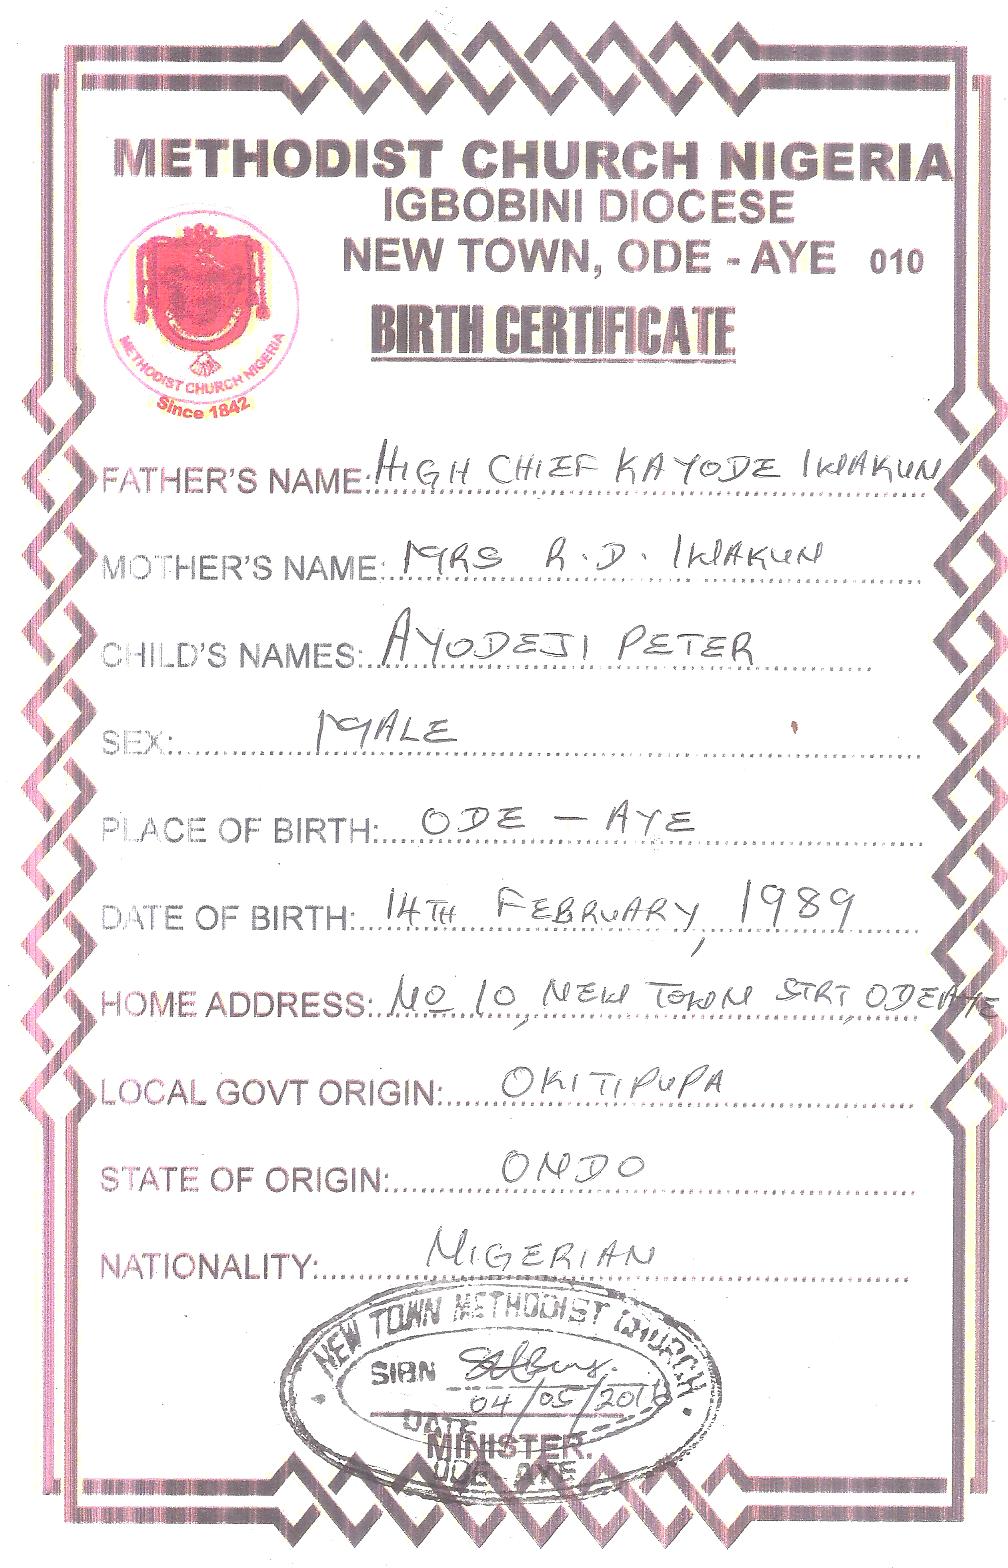 METHODIST CHURCH NIGERIA
IGBOBINI DIOCESE
NEW TOWN, ODE - AYE 010
BIRTH CERTIFICATE
METHODIST CHURCH NIGERIA
Since 1842
FATHER'S NAME: HIGH CHIEF KAYODE IWAKUN
MOTHER'S NAME: MRS R.D. IWAKUN
CHILD'S NAMES: AYODEJI PETER
SEX: MALE
PLACE OF BIRTH: ODE - AYE
DATE OF BIRTH: 14TH FEBRUARY, 1989
HOME ADDRESS: NO 10, NEW TOWN STRT, ODEAYE
LOCAL GOVT ORIGIN: OKITIPUPA
STATE OF ORIGIN: ONDO
NATIONALITY: NIGERIAN
NEW TOWN METHODIST CHURCH
SIGN
04/05/201
DATE
MINISTER.
ODE - AYE